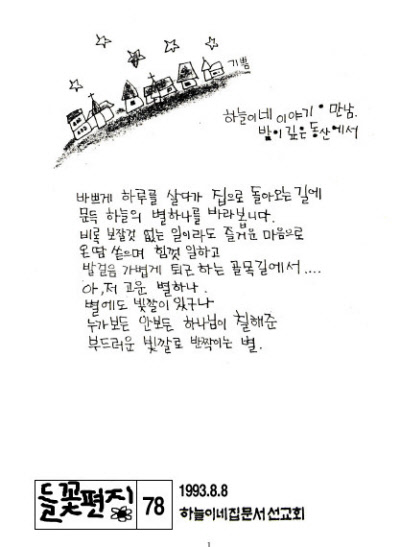 기쁨
하늘이네 이야기 • 만남.
밤이 깊은 동산에서
바쁘게 하루를 살다가 집으로 돌아오는 길에
문득 하늘의 별하나를 바라봅니다.
비록 보잘것 없는 일이라도 즐거운 마음으로
온땀 쏟으며 힘껏 일하고
발걸음 가볍게 퇴근 하는 골목길에서....
아, 저 고운 별하나.
별에도 빛깔이 있구나
누가보든 안보든 하나님이 칠해준
부드러운 빛깔로 반짝이는 별.
들꽃편지 78
1993.8.8
하늘이네집문서선교회
1